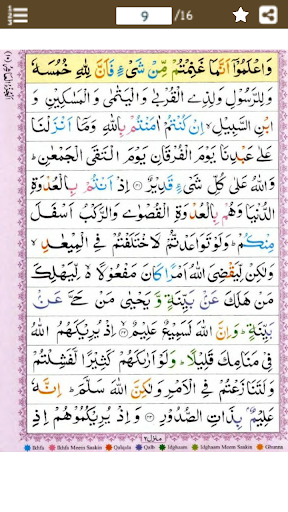 9 /16
وَاعْلَمُوْۤا اَنَّمَا غَنِمْتُمْ مِّنْ شَیْءٍ فَاَنَّ لِلّٰهِ خُمُسَهٗ
وَلِلرَّسُوْلِ وَلِذِی الْقُرْبٰی وَالْیَتٰمٰی وَالْمَسٰكِیْنِ وَ
ابْنِ السَّبِیْلِ ۙ اِنْ كُنْتُمْ اٰمَنْتُمْ بِاللّٰهِ وَمَاۤ اَنْزَلْنَا
عَلٰی عَبْدِنَا یَوْمَ الْفُرْقَانِ یَوْمَ الْتَقَی الْجَمْعٰنِ ؕ
وَاللّٰهُ عَلٰی كُلِّ شَیْءٍ قَدِیْرٌ ﴿۴۱﴾ اِذْ اَنْتُمْ بِالْعُدْوَةِ
الدُّنْیَا وَهُمْ بِالْعُدْوَةِ الْقُصْوٰی وَالرَّكْبُ اَسْفَلَ
مِنْكُمْ ؕ وَلَوْ تَوَاعَدْتُّمْ لَاخْتَلَفْتُمْ فِی الْمِیْعٰدِ ۙ
وَلٰكِنْ لِّیَقْضِیَ اللّٰهُ اَمْرًا كَانَ مَفْعُوْلًا ۙ لِّیَهْلِكَ
مَنْ هَلَكَ عَنْۢ بَیِّنَةٍ وَّیَحْیٰی مَنْ حَیَّ عَنْۢ
بَیِّنَةٍ ؕ وَاِنَّ اللّٰهَ لَسَمِیْعٌ عَلِیْمٌ ﴿۴۲﴾ اِذْ یُرِیْكَهُمُ اللّٰهُ
فِیْ مَنَامِكَ قَلِیْلًا ؕ وَلَوْ اَرٰىكَهُمْ كَثِیْرًا لَّفَشِلْتُمْ
وَلَتَنَازَعْتُمْ فِی الْاَمْرِ وَلٰكِنَّ اللّٰهَ سَلَّمَ ؕ اِنَّهٗ
عَلِیْمٌۢ بِذَاتِ الصُّدُوْرِ ﴿۴۳﴾ وَاِذْ یُرِیْكُمُوْهُمْ اِذِ
منزل ۲
Ikhfa Ikhfa Meem Saakin Qalqala Qalb Idghaam Idghaam Meem Saakin Ghunna